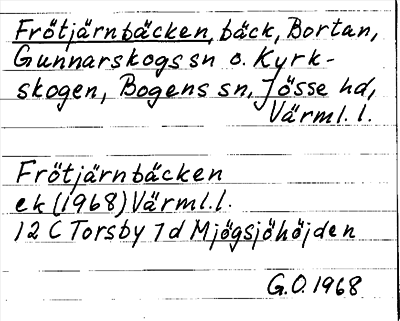 Frötjärnbäcken, bäck, Bortan,
Gunnarskogs sn o. Kyrk-
skogen, Bogens sn, Jösse hd,
Värml. l.
Frötjärnbäcken
ek (1968) Värml. l.
12 C Torsby 7 d Mjögsjöhöjden
G.O. 1968